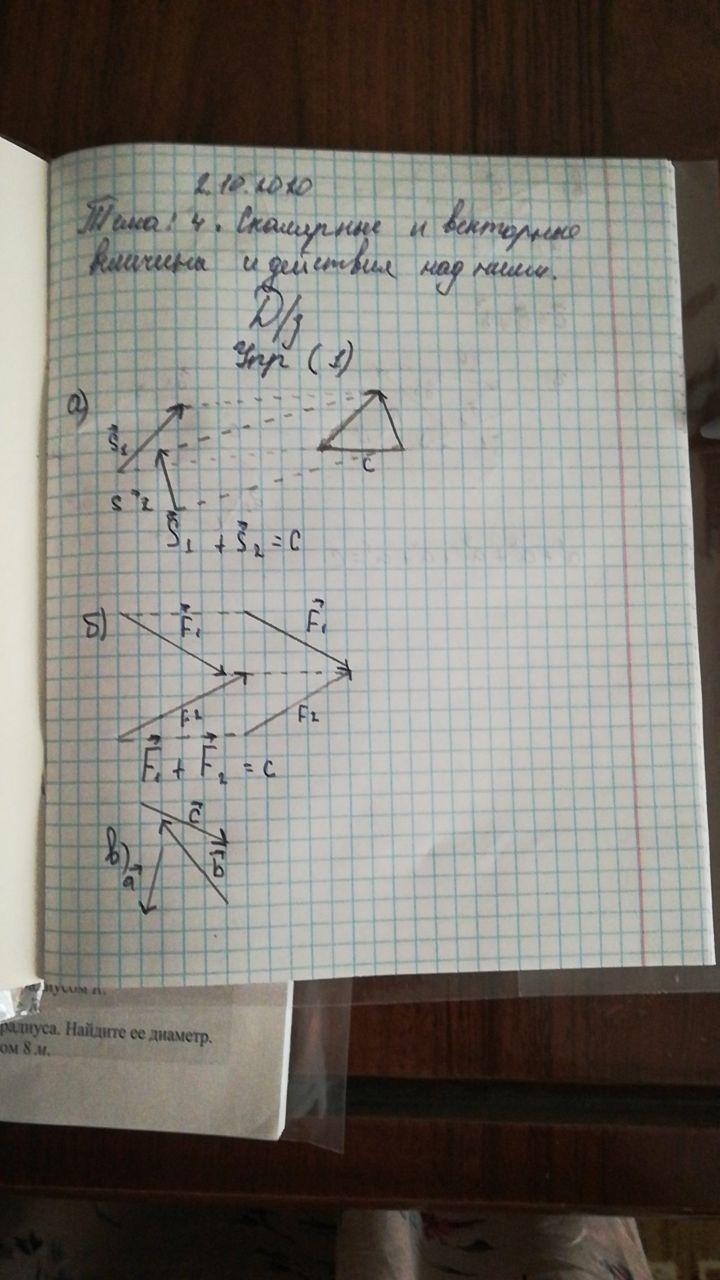 2.10.2020
Тема: 4. Скалярные и векторные
величина и действия над ними.
Д/з
Упр (1)
а)
S⃗₁
S⃗₂
C
S⃗₁ + S⃗₂ = C
б)
F⃗₁
F⃗₁
F₂
F₂
F⃗₁ + F⃗₂ = C
в)
c⃗
a⃗
b⃗
радиуса. Найдите ее диаметр.
ом 8 м.